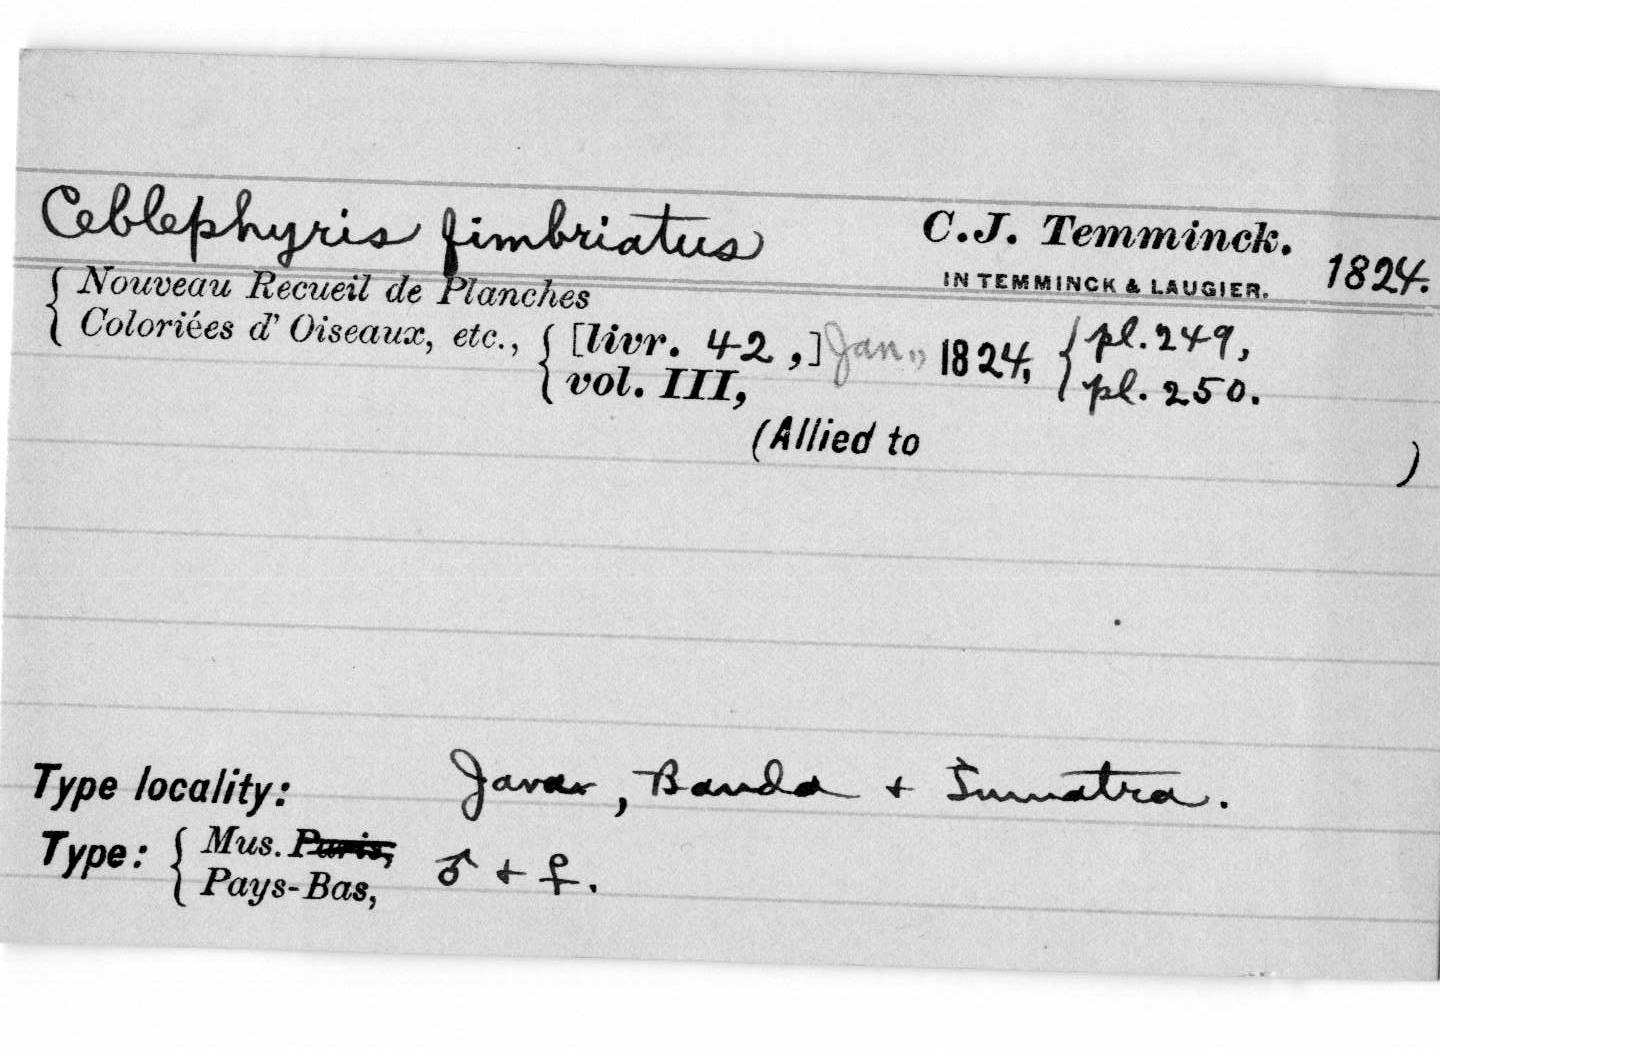 Ceblephyris fimbriatus C.J. Temminck. 1824.
IN TEMMINCK & LAUGIER.
{ Nouveau Recueil de Planches
Coloriées d' Oiseaux, etc., { [livr. 42,] Jan., 1824, { pl. 249,
vol. III, pl. 250.
(Allied to )
Type locality: Java, Banda + Sumatra.
Type: { Mus. Paris, ♂ + ♀.
Pays-Bas,